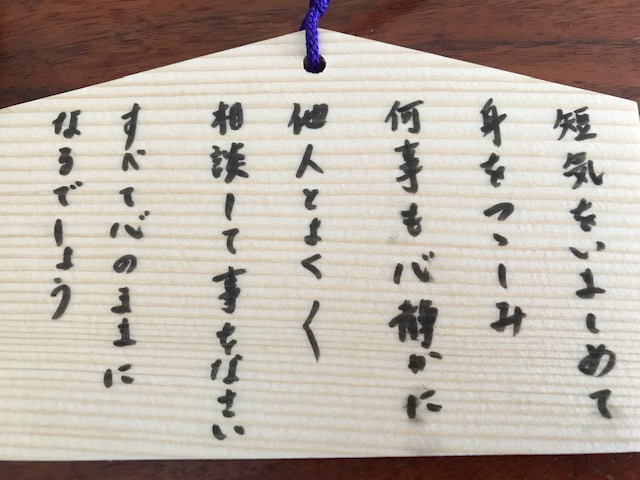 短気をいましめて
身をつゝしみ
何事も心静かに
他人とよく〱
相談して事をなさい
すべて心のままに
なるでしょう